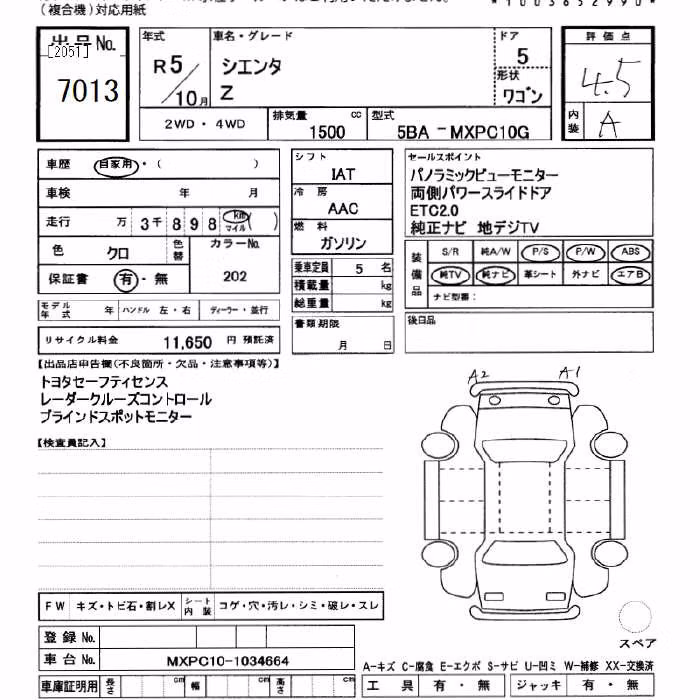 (複合機)対応用紙
*1003652990*
出品No.
[2051]
7013
年式
R5/10月
車名・グレード
シエンタ
Z
ドア
5
形状
ワゴン
評価点
4.5
内装
A
2WD・4WD
排気量 cc
1500
型式
5BA -MXPC10G
車歴 自家用・( )
車検 年 月
走行 万 3千898 km マイル ( )
色 クロ
色替
カラーNo.
202
保証書 有・無
モデル年式 年 ハンドル 左・右 ディーラー・並行
リサイクル料金 11,650 円 預託済
シフト
IAT
冷房
AAC
燃料
ガソリン
乗車定員 5 名
積載量 kg
総重量 kg
書類期限
月 日
セールスポイント
パノラミックビューモニター
両側パワースライドドア
ETC2.0
純正ナビ 地デジTV
装備品
S/R 純A/W P/S P/W ABS
純TV 純ナビ 革シート 外ナビ エアB
ナビ型番:
後日品
【出品店申告欄(不良箇所・欠品・注意事項等)】
トヨタセーフティセンス
レーダークルーズコントロール
ブラインドスポットモニター
【検査員記入】
A2 A1
FW キズ・トビ石・割レX シート内装 コゲ・穴・汚レ・シミ・破レ・スレ
スペア
登録No.
車台No. MXPC10-1034664
A-キズ C-腐食 E-エクボ S-サビ U-凹ミ W-補修 XX-交換済
車庫証明用 長さ cm 幅 cm 高さ cm
工具 有・無 ジャッキ 有・無